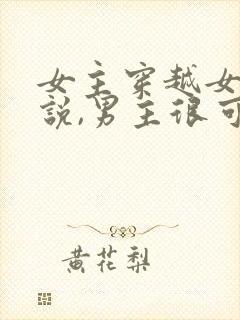 女主穿越女
説,男主很可
黄花梨